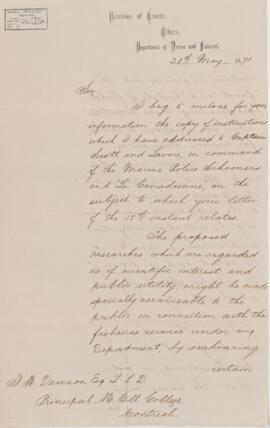 Dominion of Canada,
Ottawa,
Department of Marine and Fisheries,
20th May 1871
Sir,
I beg to enclose for your
information the copy of instructions
which I have addressed to Captains
Scott and Lavoie, in command
of the Marine Police Schooners
and "La Canadienne, on the
subject to which your letter
of the 15th instant relates.
The proposed
researches which are regarded
as of scientific interest and
public utility, might be made
specially serviceable to the
public in connection with the
fisheries service under my
Department, by embracing
certain
J. W. Dawson Esq L L D
Principal McGill College
Montreal.